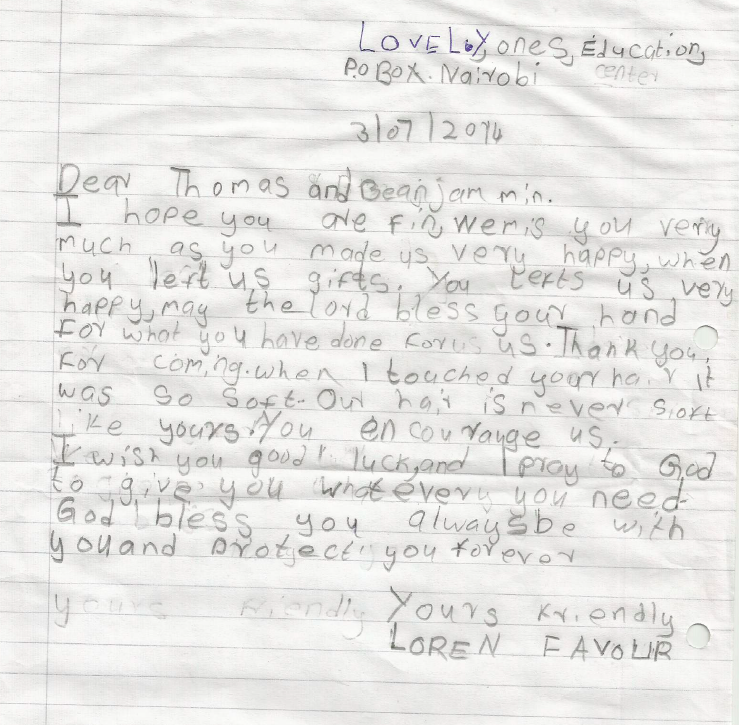 LOVELY ones, Education,
P.O BOX. Nairobi center
3/07/2014
Dear Thomas and Beanjammin.
I hope you are fin, wemis you verry
much as you made us very happy, when
you left us gifts. You lefts us very
happy, may the lord bless your hand
for what you have done forus us. Thank you,
For coming. when I touched your hair it
was so soft. Our hair is never soft
like yours. You encourange us.
I wish you good luck, and I pray to God
to give you what every you need
God bless you always be with
you and protect you forever
yours Friendly Yours Friendly
LOREN FAVOUR